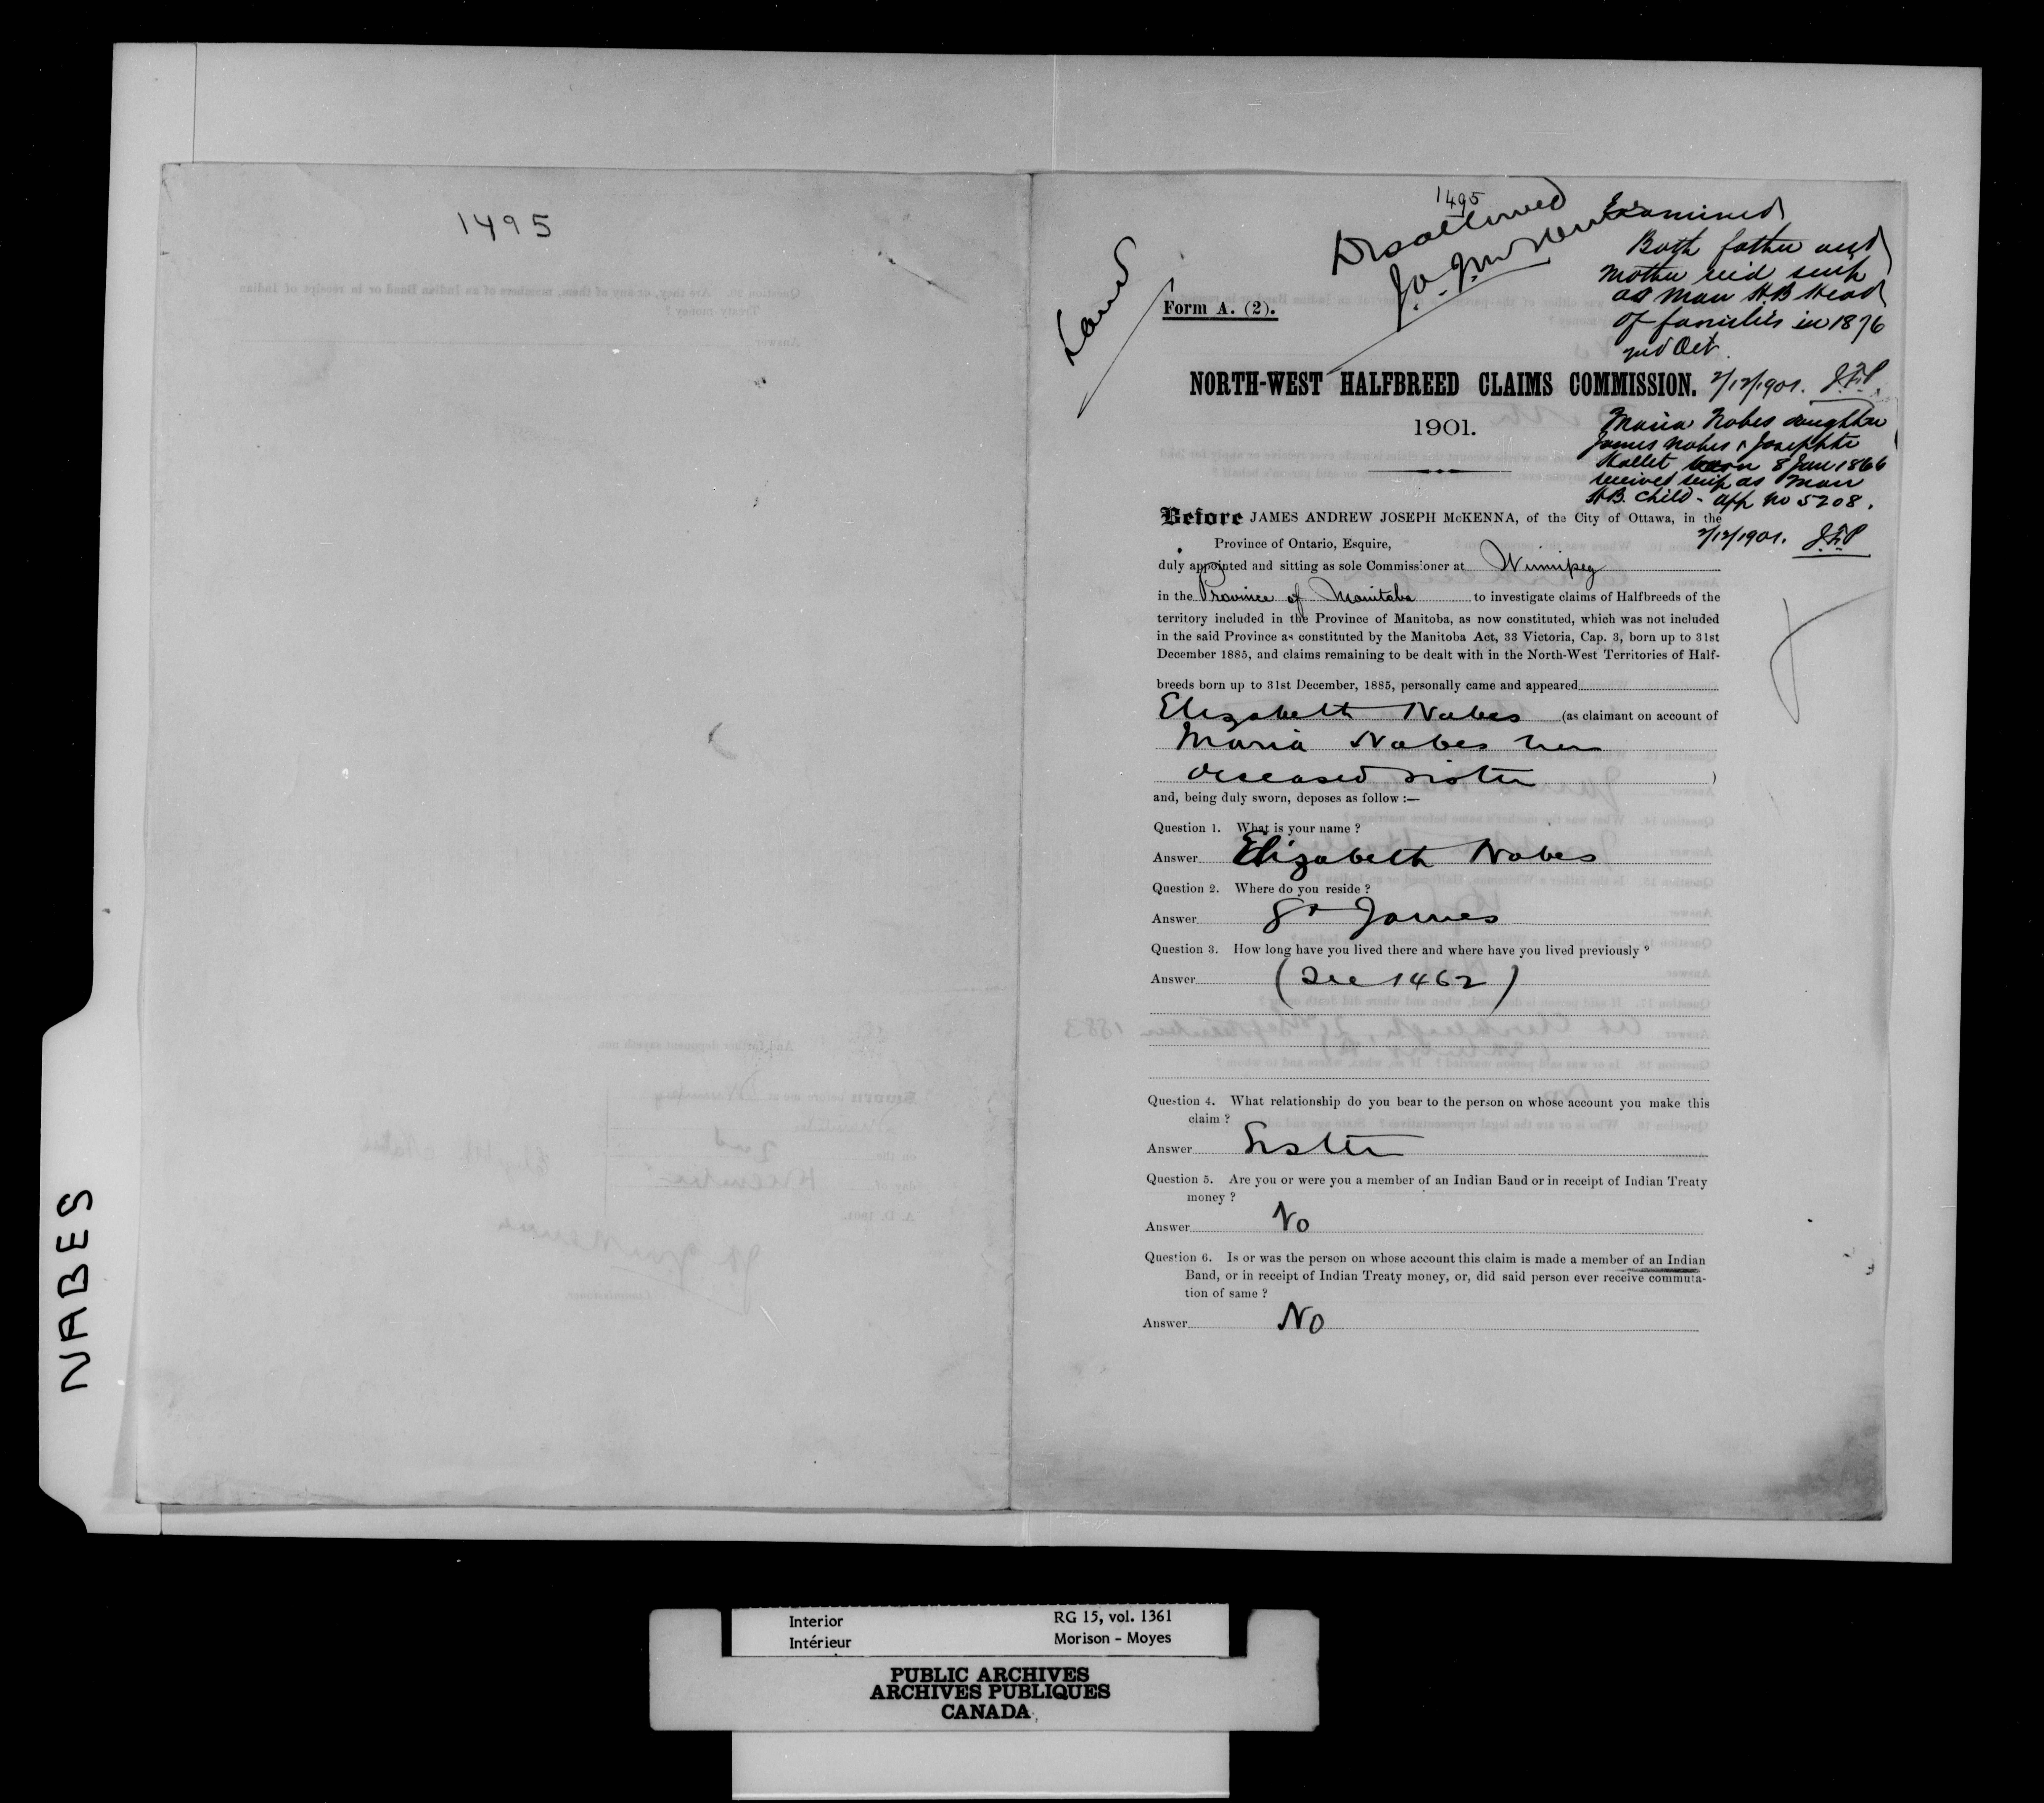 1495
NABES
1495
Disallowed
J.A.J. McKenna
Land
Examined
Both father and
mother rec'd scrip
as Man H.B Head
of families in 1876
2nd Oct.
2/12/1901. J.F.P.
Maria Nabes daughter
James Nabes & Josephte
Hallet born 8 Jan 1866
received scrip as Man
H.B. child - app no 5208.
2/12/1901. J.F.P
Form A. (2).
NORTH-WEST HALFBREED CLAIMS COMMISSION.
1901.
Before JAMES ANDREW JOSEPH McKENNA, of the City of Ottawa, in the
Province of Ontario, Esquire,
duly appointed and sitting as sole Commissioner at Winnipeg
in the Province of Manitoba to investigate claims of Halfbreeds of the
territory included in the Province of Manitoba, as now constituted, which was not included
in the said Province as constituted by the Manitoba Act, 33 Victoria, Cap. 3, born up to 31st
December 1885, and claims remaining to be dealt with in the North-West Territories of Half-
breeds born up to 31st December, 1885, personally came and appeared
Elizabeth Nabes (as claimant on account of
Maria Nabes her
deceased sister )
and, being duly sworn, deposes as follow :—
Question 1. What is your name ?
Answer Elizabeth Nabes
Question 2. Where do you reside ?
Answer St James
Question 3. How long have you lived there and where have you lived previously ?
Answer (See 1462)
Question 4. What relationship do you bear to the person on whose account you make this
claim ?
Answer Sister
Question 5. Are you or were you a member of an Indian Band or in receipt of Indian Treaty
money ?
Answer No
Question 6. Is or was the person on whose account this claim is made a member of an Indian
Band, or in receipt of Indian Treaty money, or, did said person ever receive commuta-
tion of same ?
Answer No
Interior RG 15, vol. 1361
Intérieur Morison - Moyes
PUBLIC ARCHIVES
ARCHIVES PUBLIQUES
CANADA